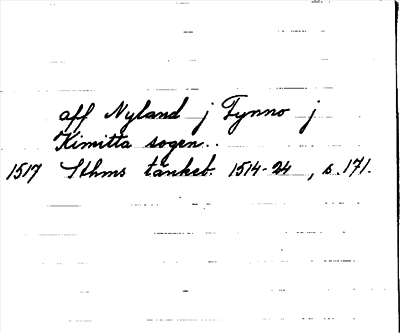 aff Nyland j Tynno j
Kimitta sogen..
1517 Sthms tänkeb. 1514-24, s. 171.